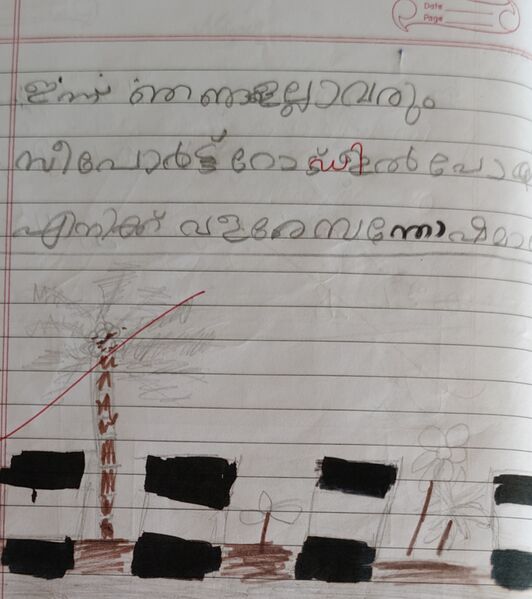 Date
Page
ഇന്ന് ഞങ്ങളെല്ലാവരും
സീപോർട്ട് റോഡിൽ പോയ
എനിക്ക് വളരെ സന്തോഷമാ